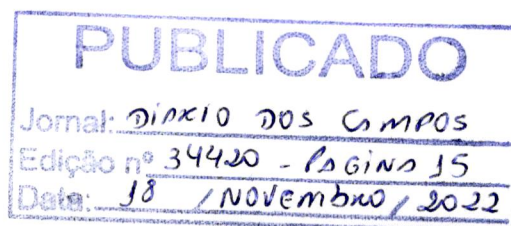 PUBLICADO
Jornal: DIÁRIO DOS CAMPOS
Edição nº 34420 - PAGINA 15
Data: 18 / NOVEMBRO / 2022